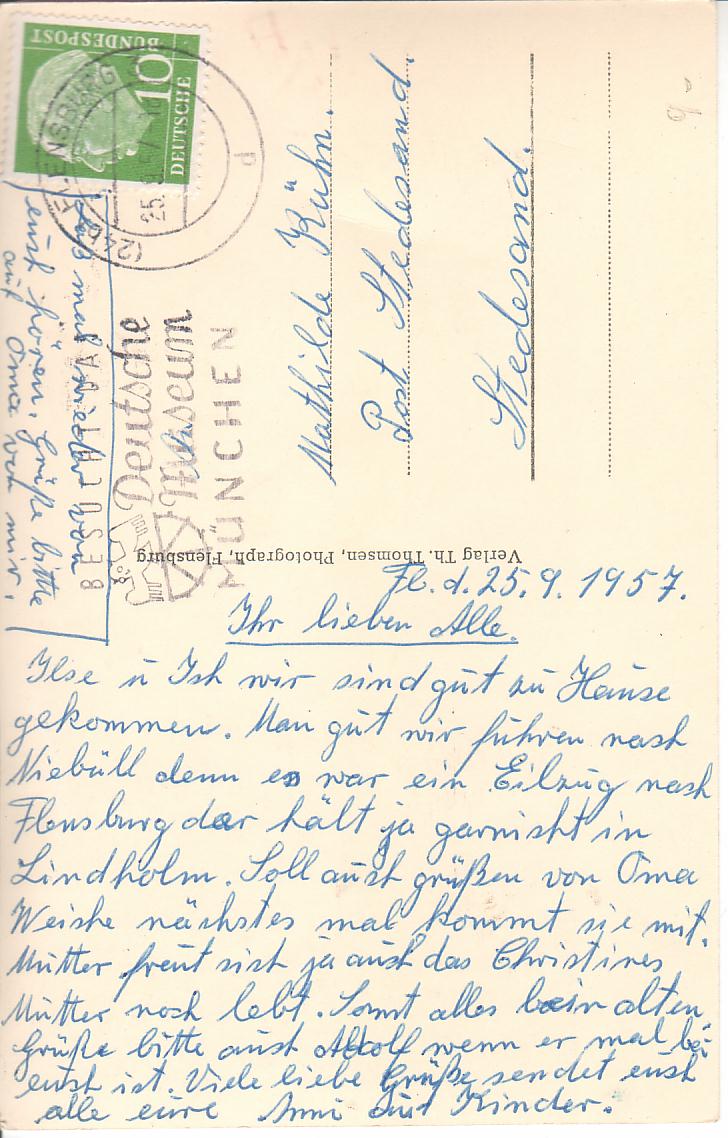 DEUTSCHE
BUNDESPOST
10
FLENSBURG
(24b)
25.9.57
d
BESUCHT DAS
Deutsche
Museum
MÜNCHEN
Mathilde Kühn.
Post Stedesand.
Stedesand.
Verlag Th. Thomsen, Photograph, Flensburg
Fl. d. 25.9.1957.
Ihr lieben Alle.
Ilse u Ich wir sind gut zu Hause
gekommen. Man gut wir führen nach
Niebüll denn es war ein Eilzug nach
Flensburg der hält ja garnicht in
Lindholm. Soll auch grüßen von Oma
Weiche nächstes mal kommt sie mit.
Mutter freut sich ja auch das Christines
Mutter noch lebt. Sonst alles beim alten
Grüße bitte auch Adolf wenn er mal bei
euch ist. Viele liebe Grüße sendet euch
alle eure Anni und Kinder.
Laß mal wieder von
euch hören. Grüße bitte
auch Oma von mir.
9-